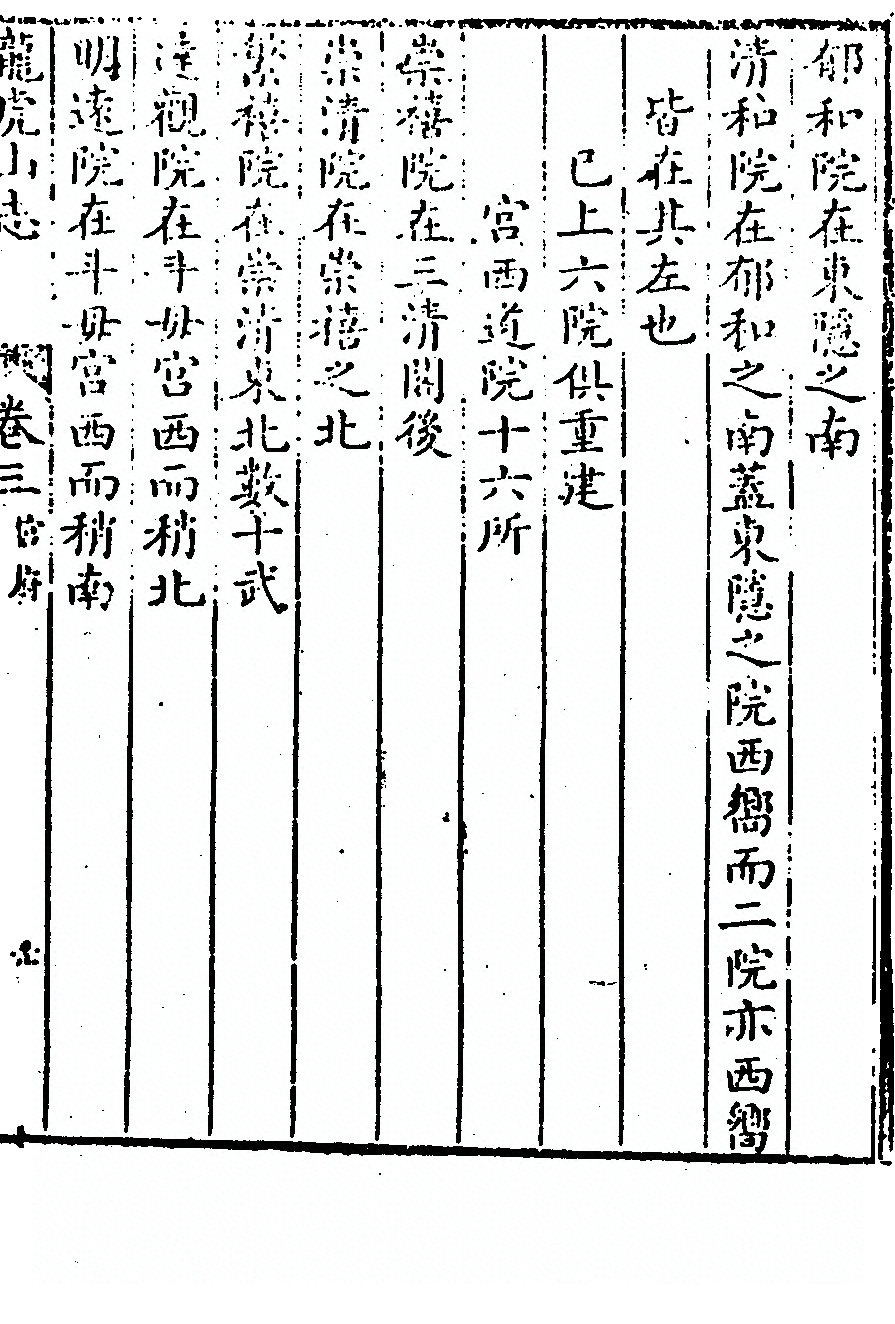 郁和院在東隱之南
清和院在郁和之南葢東隱之院西嚮而二院亦西嚮
皆在其左也
已上六院俱重建
宫西道院十六所
崇禧院在三清閣後
崇清院在崇禧之北
繁禧院在崇清東北數十武
達觀院在斗母宫西而稍北
明遠院在斗母宫西而稍南
龍虎山志 卷三 宫府